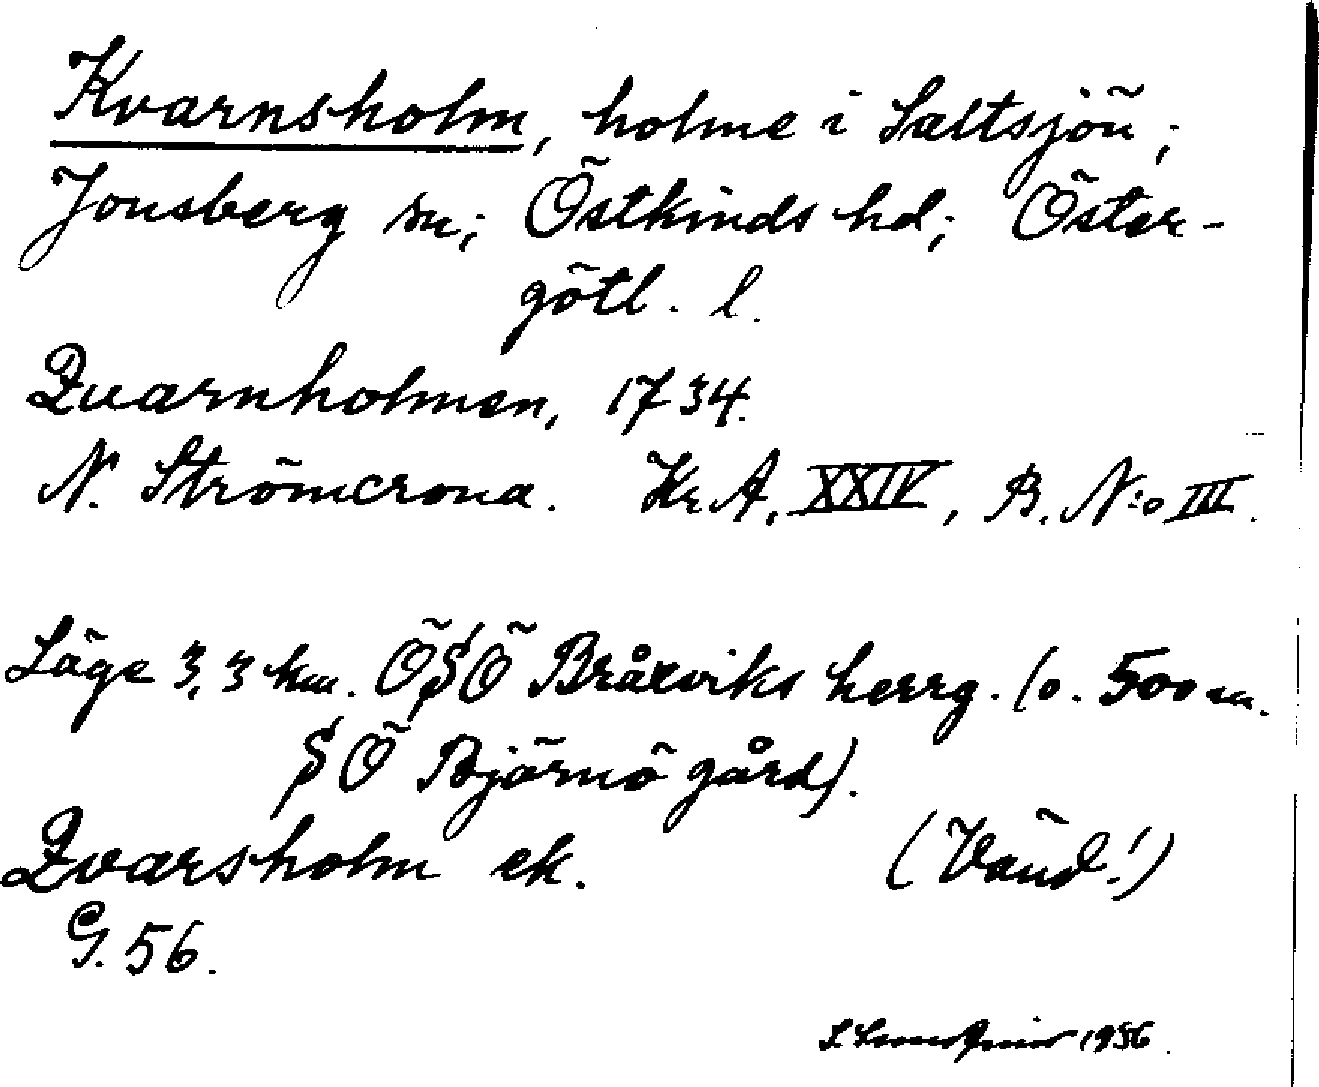 Kvarnsholm, holme i Saltsjön;
Jonsberg sn; Östkinds hd; Öster-
götl. l.
Qvarnholmen, 1734.
N. Strömcrona. Kr. A, XXIV, B. N:o III.
Läge 3,3 km. ÖSÖ Bråxviks herrg. (o. 500 m.
SÖ Björnö gård).
Qvarsholm ek. (Vänd!)
G. 56.
1956.